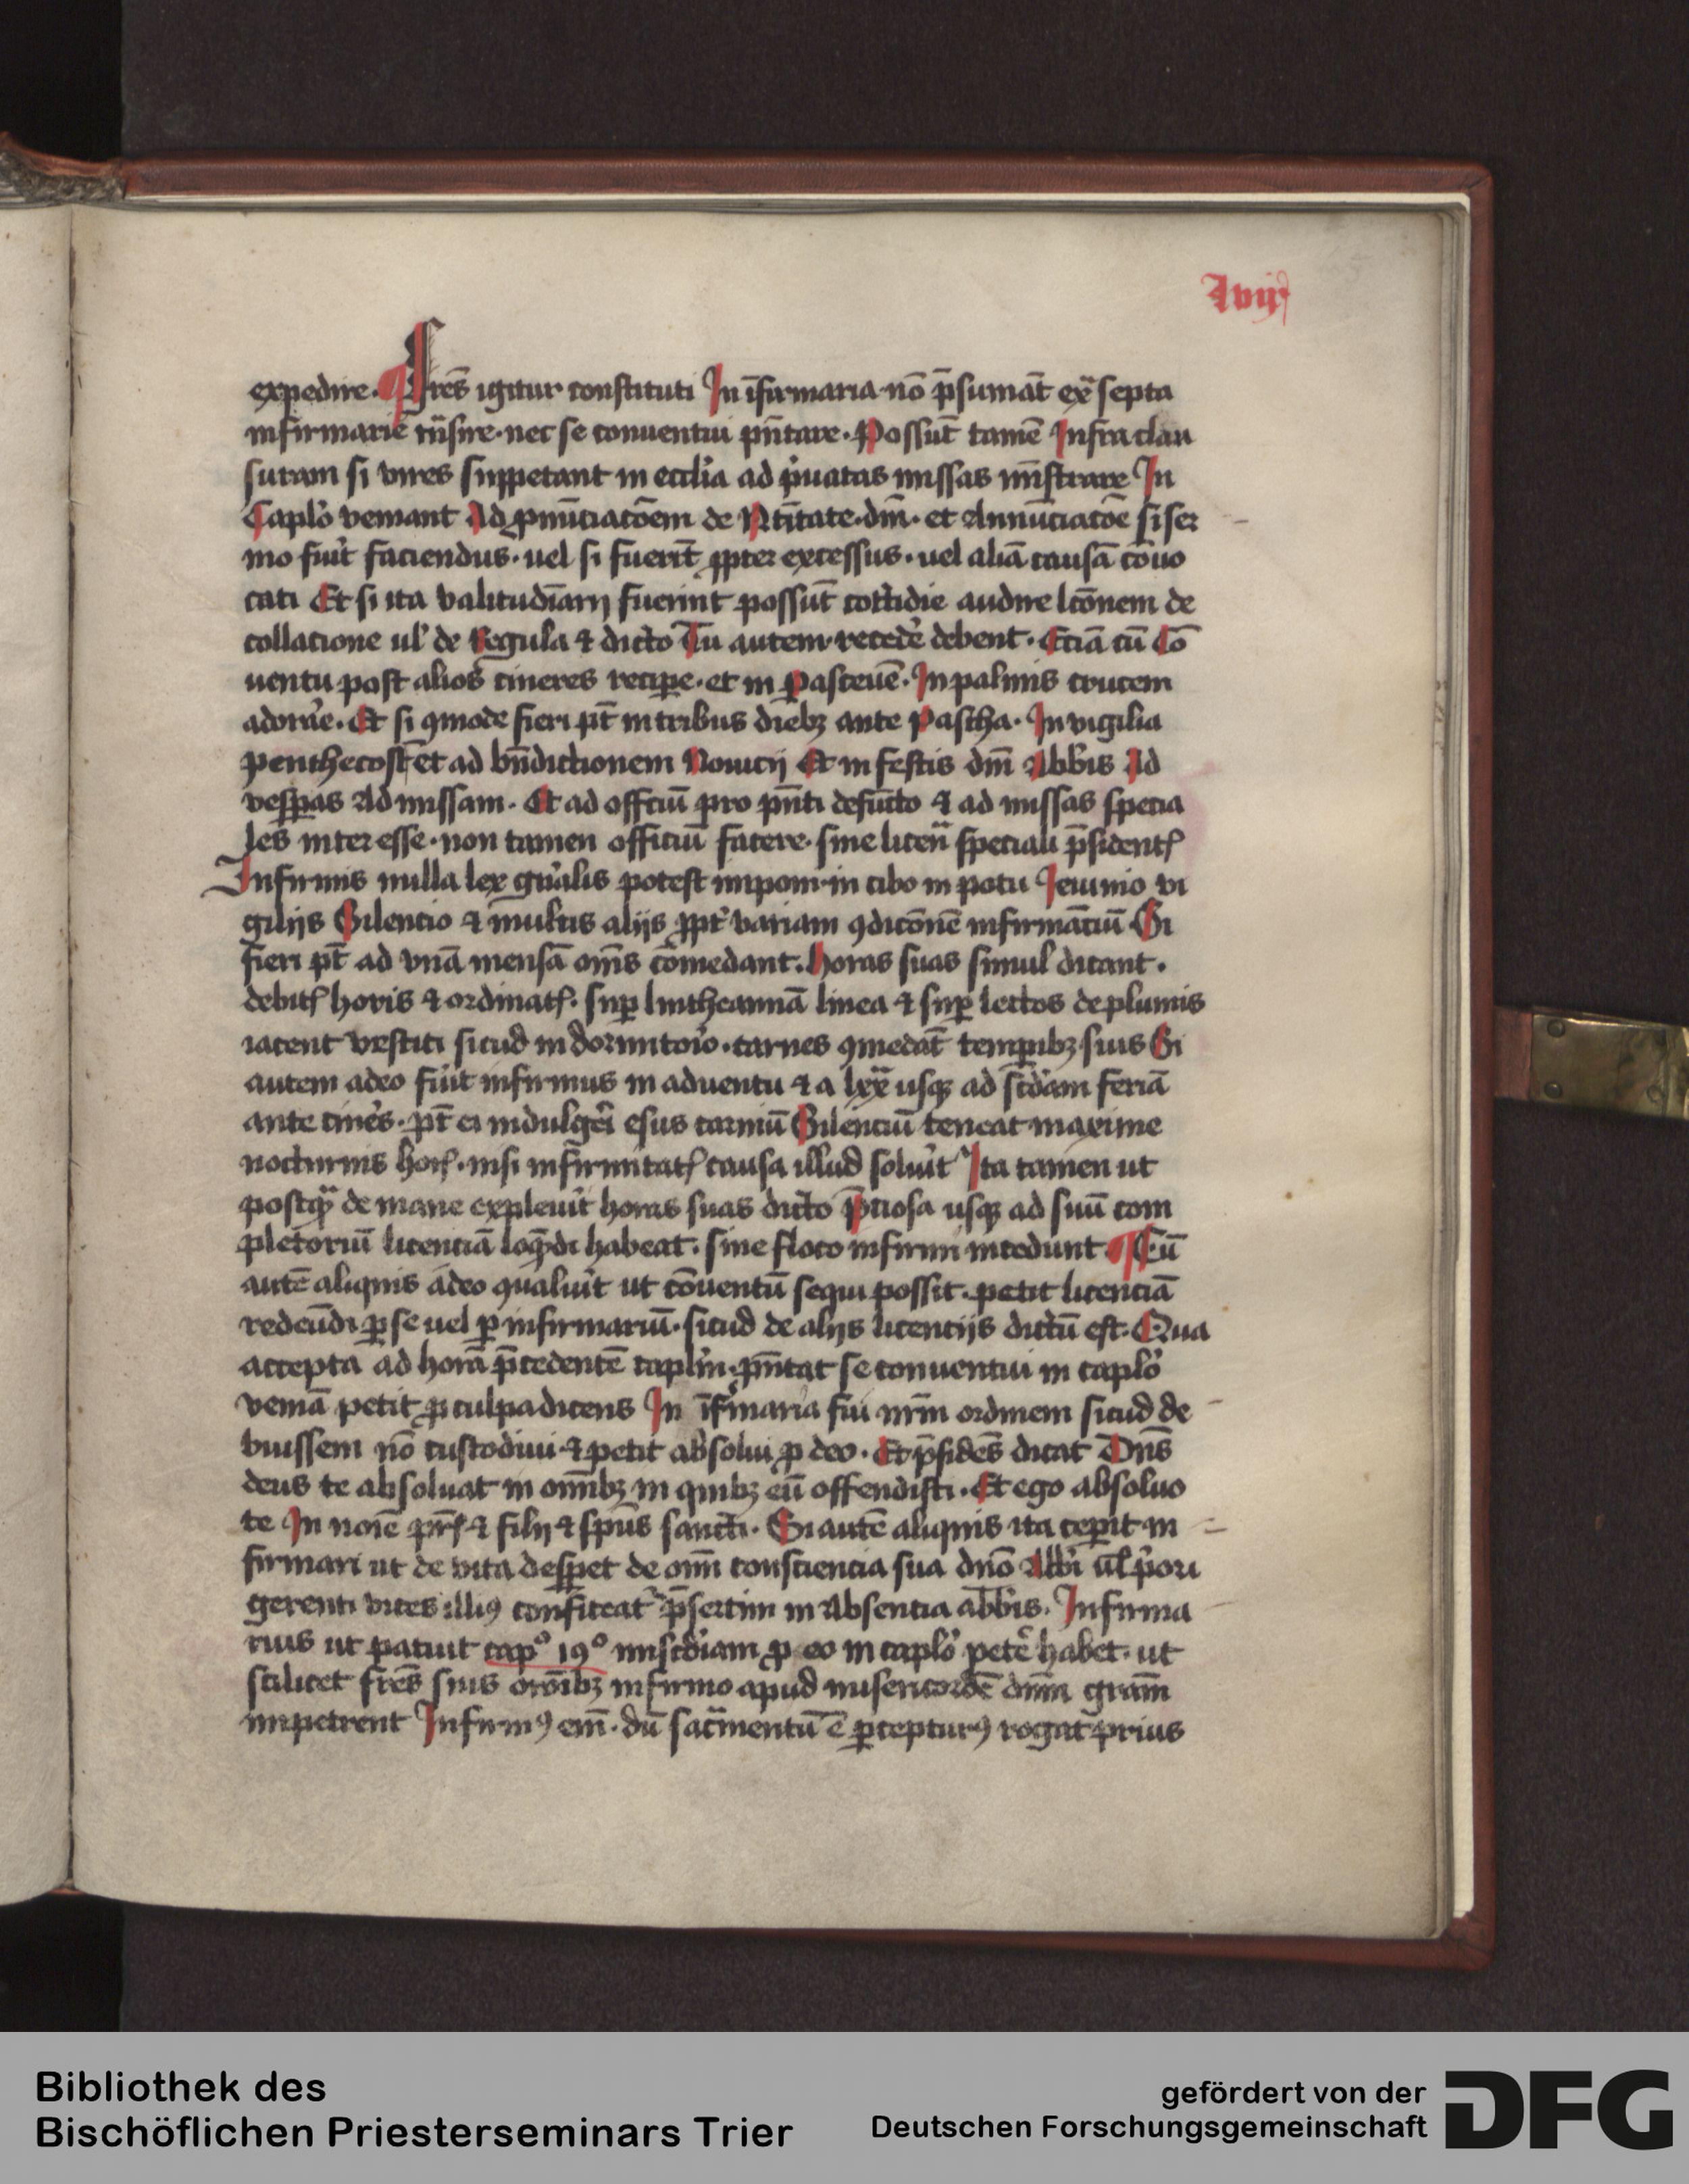 lviij
expedire. Fr̄es igitur constituti In īfirmaria nō p̄sumāt ext̄ septa
infirmarie tn̄sire. nec se conuentui pn̄tare. Possūt tamē Infra clau
suram si vires suppetant in eccl̓ia ad p̓uatas missas mīstrare In
Caplo̓ veniant Ad p̱nūciacōem de Ntītate. dm̄. et Annūciacōe si ser
mo fiu̓t faciendus. uel si fuerīt ꝓpter excessus. uel aliā causā cōuo
cati Et si ita valitudīarij fuerint possūt cottidie audire lcōnem de
collacione ul̓ de Regula ⁊ dicto Tu autem recede̓ debent. Eciā cū Cō
uentu post alios cineres recipe. et in pasceuē. In palmis crucem
adora̓e. Et si ꝯmode fieri pt̄ in tribus diebꝫ ante pascha. In vigilia
penthecost̄ et ad bn̄dictionem Nouicij Et in festis dm̄ Abb̓is Ad
vesꝑas Ad missam. Et ad officiū pro pn̄ti defūcto ⁊ ad missas specia
les interesse. non tamen officiū facere. sine licen̄ speciali p̄sidentꝭ
Infirmis nulla lex gn̓alis potest imponi in cibo in potu Jeiunio vi
gilijs Silencio ⁊ multis alijs ꝓpt̓ variam ꝯdicōnē infirmāciū Si
fieri pt̄ ad vnā mensā om̄s cōmedant. Horas suas simul dicant.
debitꝭ horis ⁊ ordinatꝭ. suꝑ lintheaminā linea ⁊ suꝑ lectos de plumis
iacent vestiti sicud in dormitoi̓o. carnes ꝯmedāt temꝑibꝫ suis Si
autem adeo fiu̓t infirmus in aduentu ⁊ a lxx̄ usqꝫ ad sc̄dam feriā
ante cine̓s. pt̄ ei indulge̓i esus carniū Silenciū teneat maxime
nocturnis horꝭ. nisi infirmitatꝭ causa illud soluu̓t Ita tamen ut
postqᷓ de mane expleuit horas suas dicto p̄ciosa usqꝫ ad suū com
pletoriū licenciā loqᷓdi habeat. sine floco infirmi incedunt Cū
autē aliquis adeo ꝯualuīt ut cōuentū sequi possit. petit licenciā
redeūdi ꝑ se uel ꝑ infirmariū. sicud de alijs licencijs dictū est. Qua
accepta ad horā p̄cedentē capl̓m. pn̄tat se conuentui in caplo̓
veniā petit ꝓ culpa dicens In īfirmaria fui nr̄m ordinem sicud de
buissem nō custodiui ⁊ petit absolui ꝓ deo. Et p̄sidēs dicat Dn̄s
deus te absoluat in om̄ibꝫ in quibꝫ eū offendisti. Et ego absoluo
te In noīe pr̄ꝭ ⁊ filij ⁊ sp̄us sancti. Si autē aliquis ita ceꝑit in
firmari ut de vita desꝑet de om̄i consciencia sua dn̄o Abb̓i ul̄ p̓ori
gerenti vices illiꝯ confiteat᷑ p̄sertim in Absencia abb̄is. Infirma
rius ut patuit cap⁰ 19⁰ miscd̓iam ꝓ eo in caplo̓ pete̓ habet. ut
scilicet fr̄es suis orōibꝫ infirmo apud misericordē dn̄m gra̅m
impetrent Infirmꝯ em̄. dū sac̄mentū ē ꝑcepturꝯ rogat prius
Bibliothek des
Bischöflichen Priesterseminars Trier
gefördert von der
Deutschen Forschungsgemeinschaft
DFG